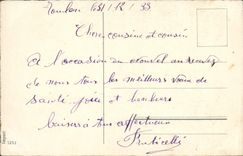 Toulon
Chère cousine et cousin
A l'occasion du nouvel an recevez
de nous tous les meilleurs vœux de
santé joie et bonheur
Baisers à tous affectueux